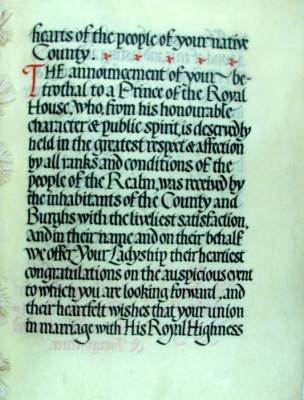 hearts of the people of your native
County.
THE announcement of your be-
trothal to a Prince of the Royal
House, who, from his honourable
character & public spirit, is deservedly
held in the greatest respect & affection
by all ranks and conditions of the
people of the Realm, was received by
the inhabitants of the County and
Burghs with the liveliest satisfaction,
and in their name and on their behalf
we offer Your Ladyship their heartiest
congratulations on the auspicious event
to which you are looking forward, and
their heartfelt wishes that your union
in marriage with His Royal Highness